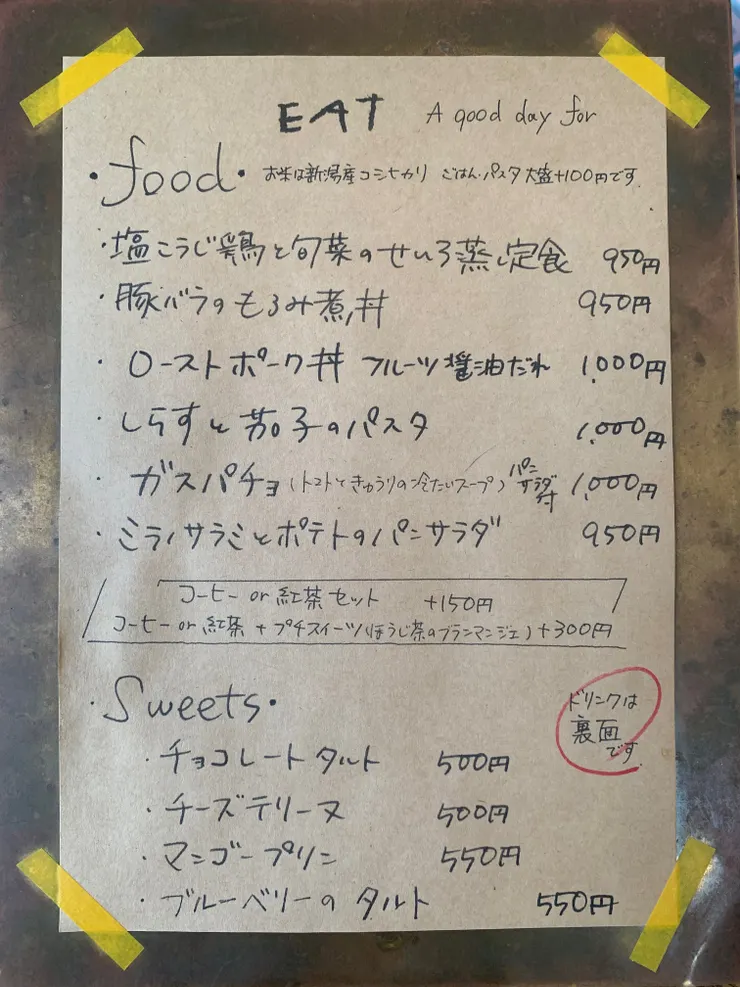 EAT A good day for
・food・ お米は新潟産コシヒカリ ごはん・パスタ大盛+100円です
・塩こうじ鶏と旬菜のせいろ蒸し定食 950円
・豚バラのもろみ煮丼 950円
・ローストポーク丼 フルーツ醤油だれ 1,000円
・しらすと茄子のパスタ 1,000円
・ガスパチョ(トマトときゅうりの冷たいスープ)パンサラダ付 1,000円
・ミラノサラミとポテトのパンサラダ 950円
コーヒー or 紅茶セット +150円
コーヒー or 紅茶 + プチスイーツ(ほうじ茶のブランマンジェ) +300円
・Sweets・
ドリンクは
裏面
です
・チョコレートタルト 500円
・チーズテリーヌ 500円
・マンゴープリン 550円
・ブルーベリーのタルト 550円